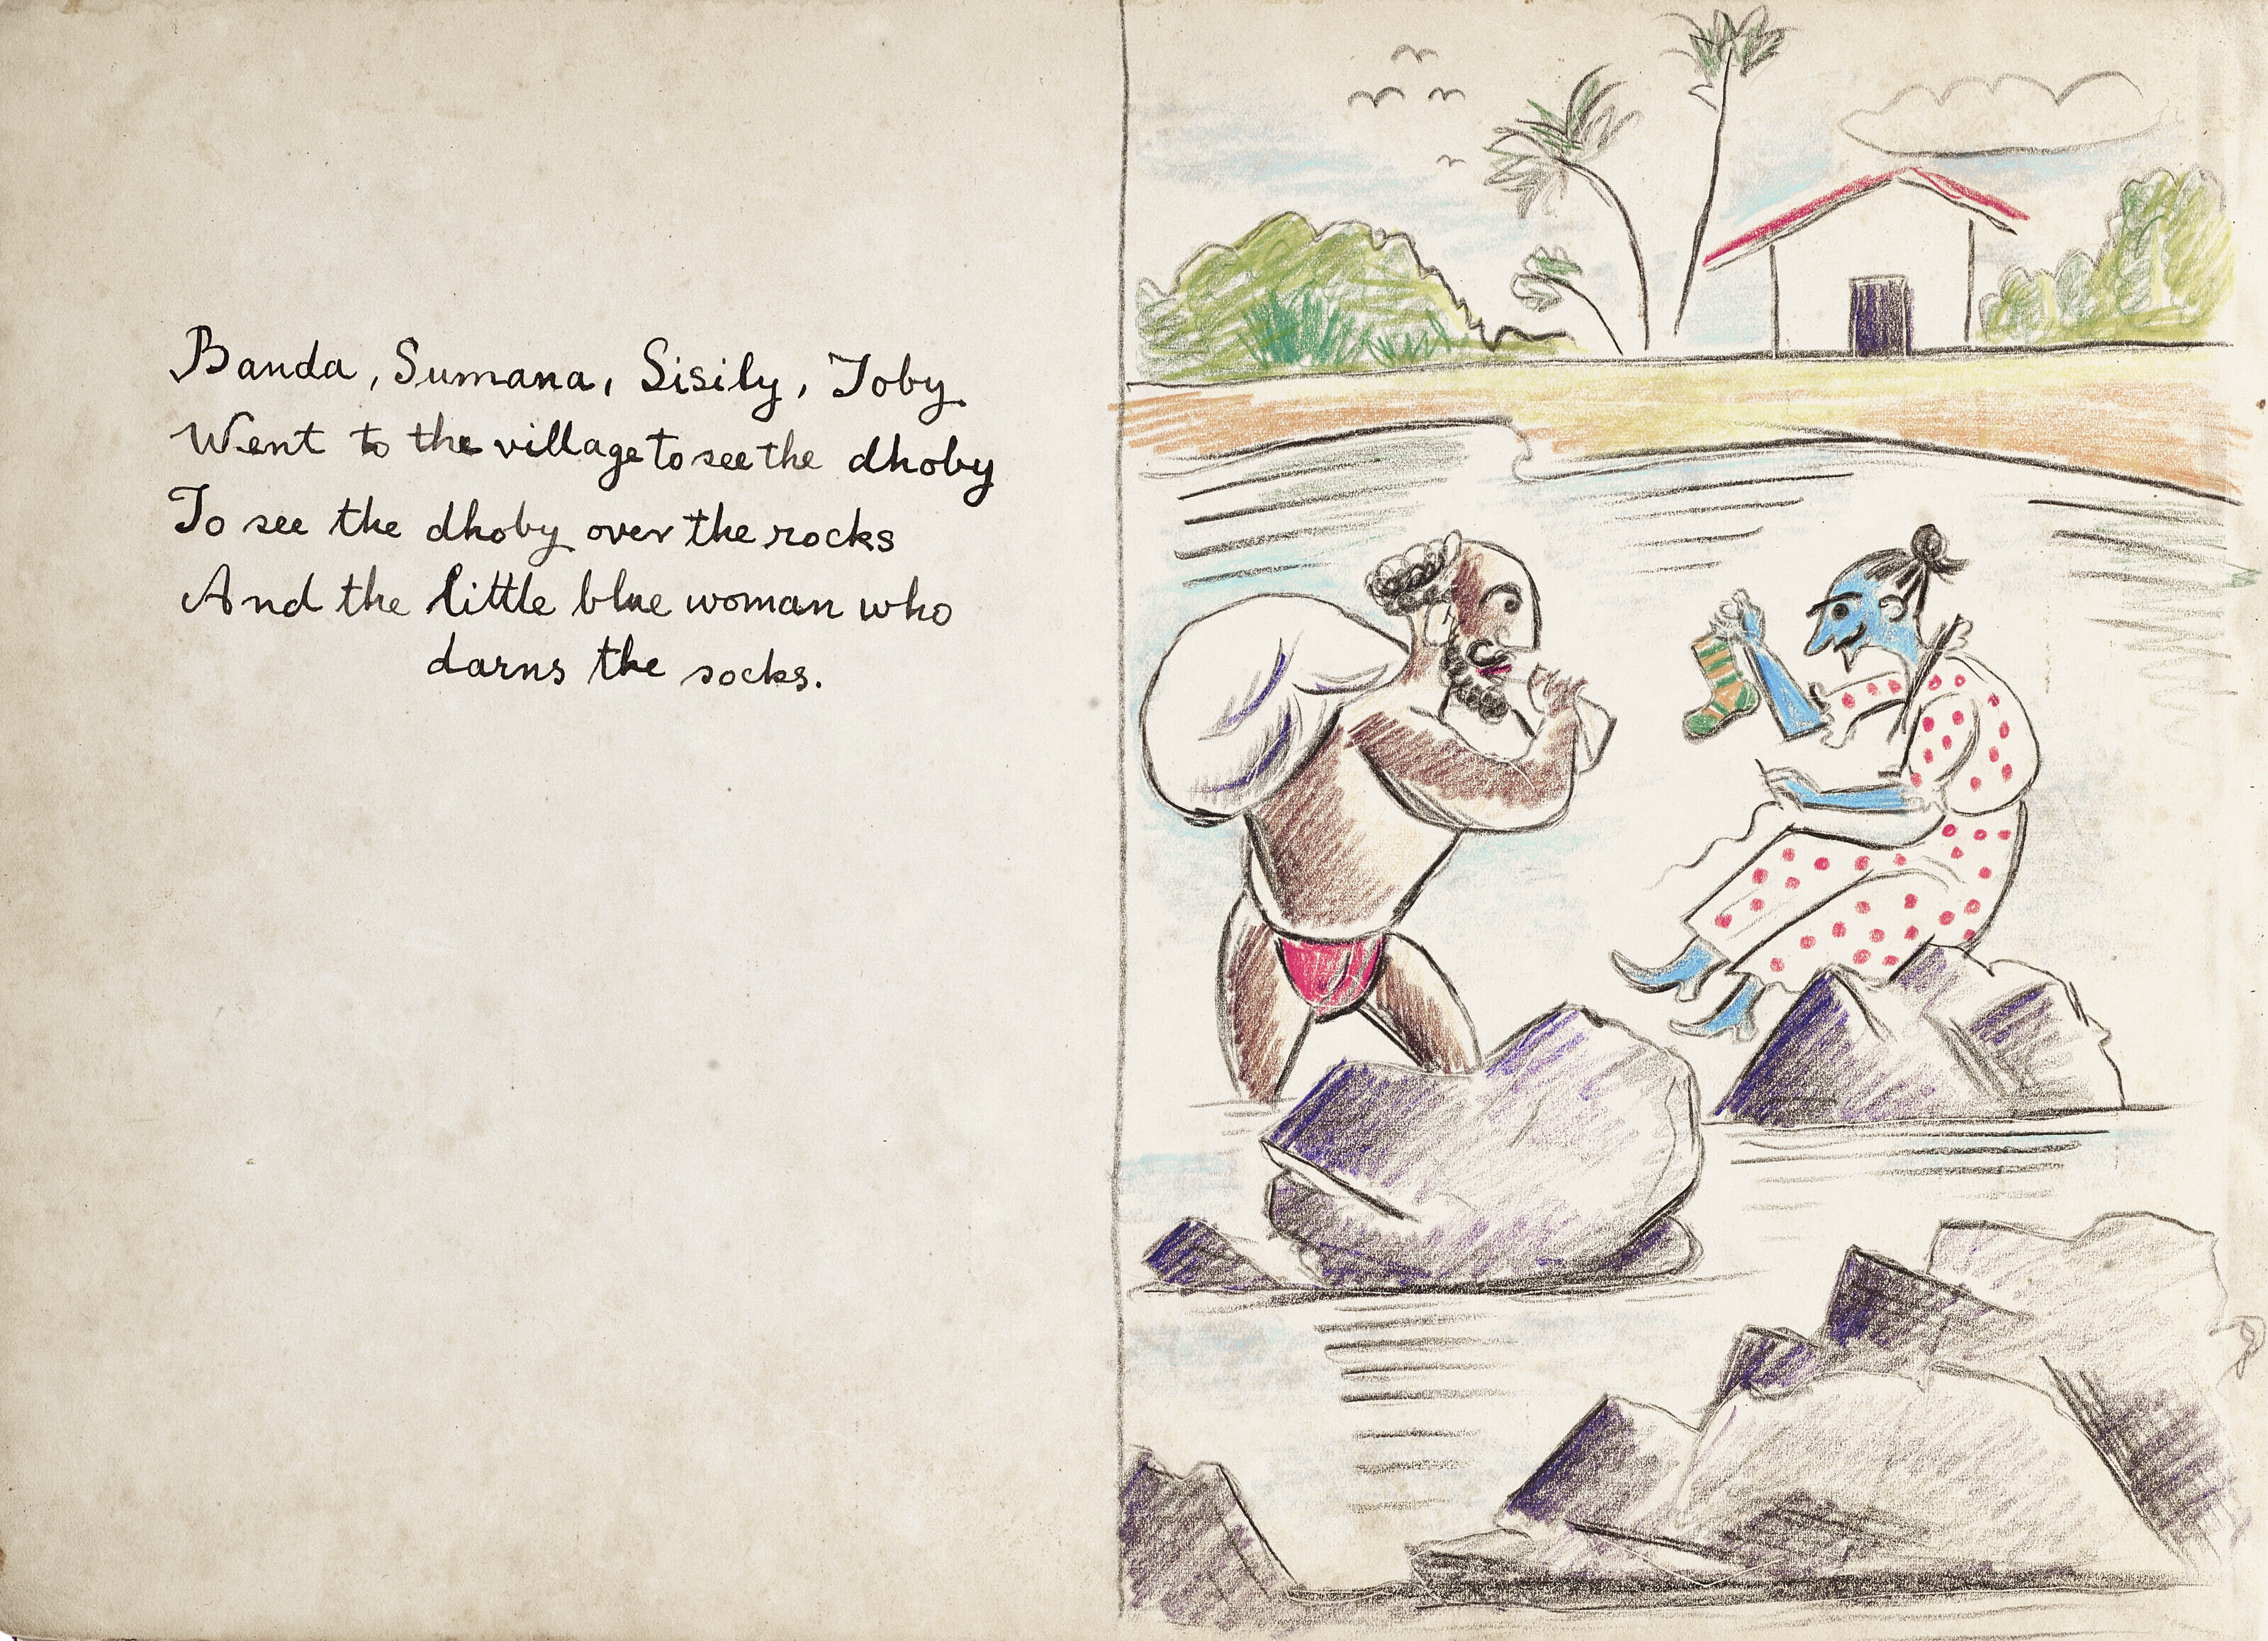 Banda, Sumana, Sisily, Toby
Went to the village to see the dhoby
To see the dhoby over the rocks
And the little blue woman who
darns the socks.